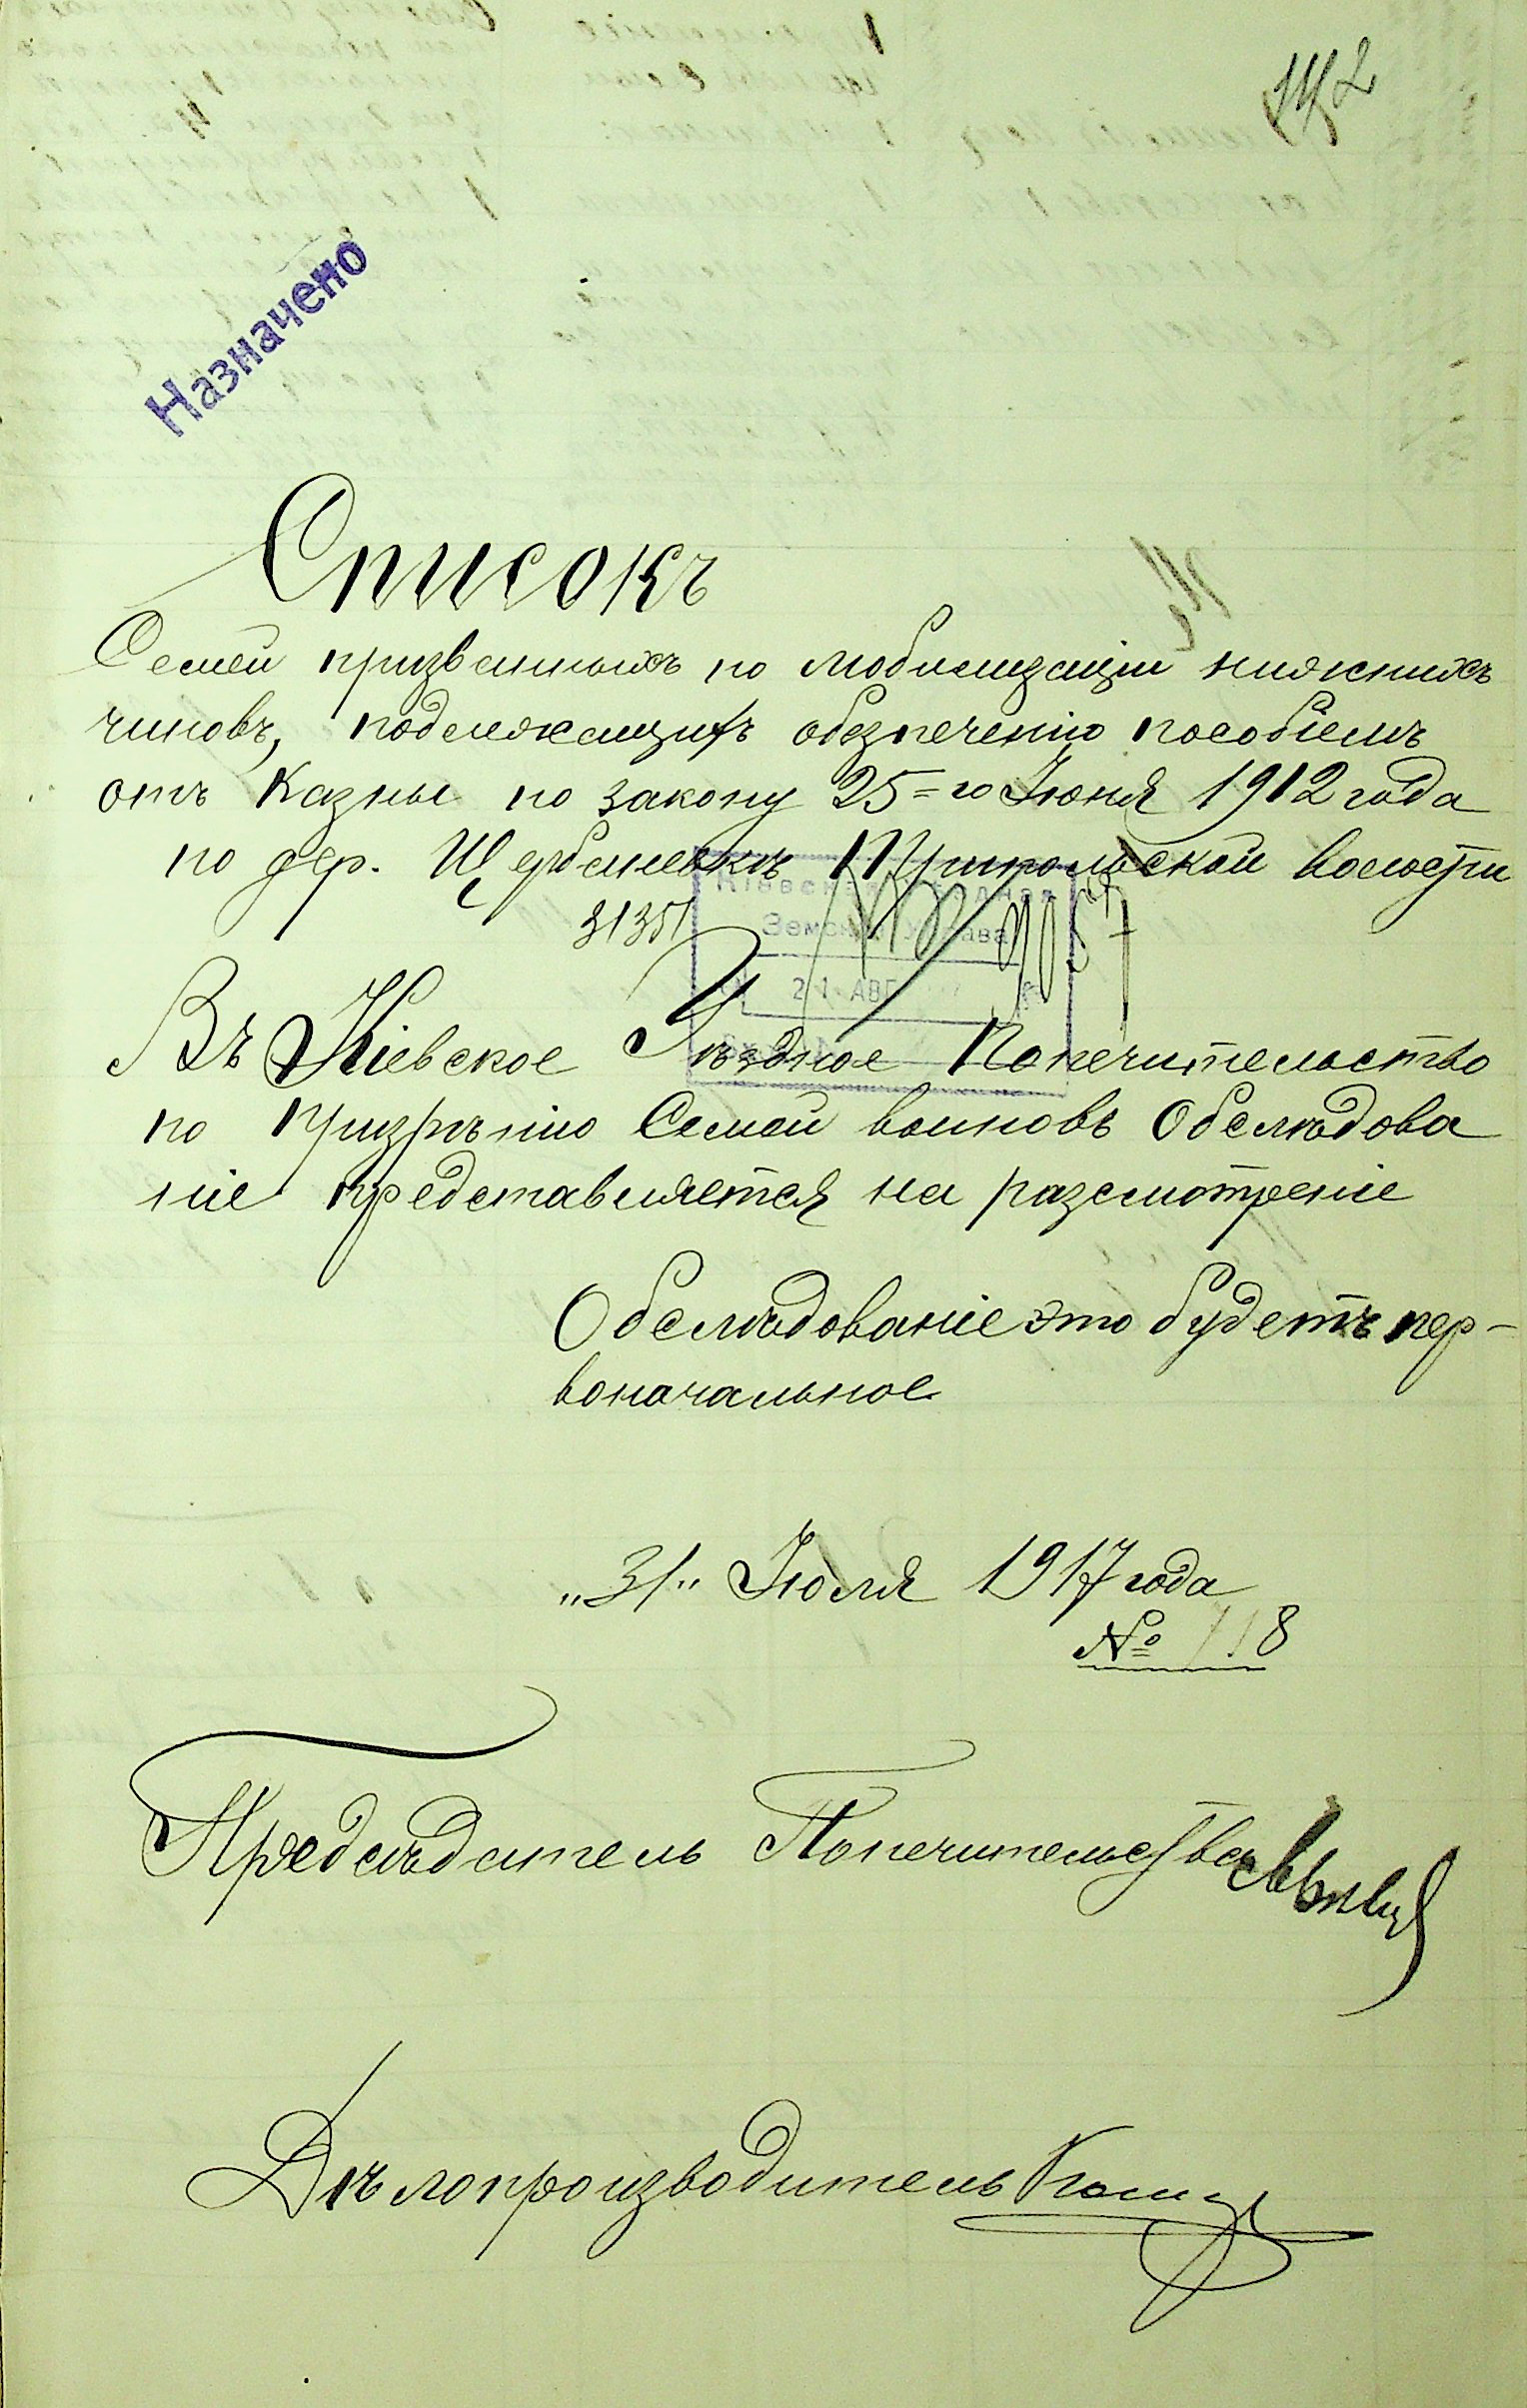 142
Назначено
Списокъ
Семей призванныхъ по мобилизаціи нижнихъ
чиновъ, подлежащихъ обезпеченію пособіемъ
отъ казны по закону 25=го Іюня 1912 года
по дер. Щербаневкѣ Трипольской волости
31351
Кіевская Уѣздная
Земская Управа
21 АВГ
Въ Кіевское Уѣздное Попечительство
по призрѣнію Семей воиновъ Обслѣдова
ніе представляется на разсмотреніе
Обслѣдованіе это будетъ пер-
воначальное
„31„ Іюля 1917 года
№ 118
Предсѣдатель Попечительства
Дѣлопроизводитель